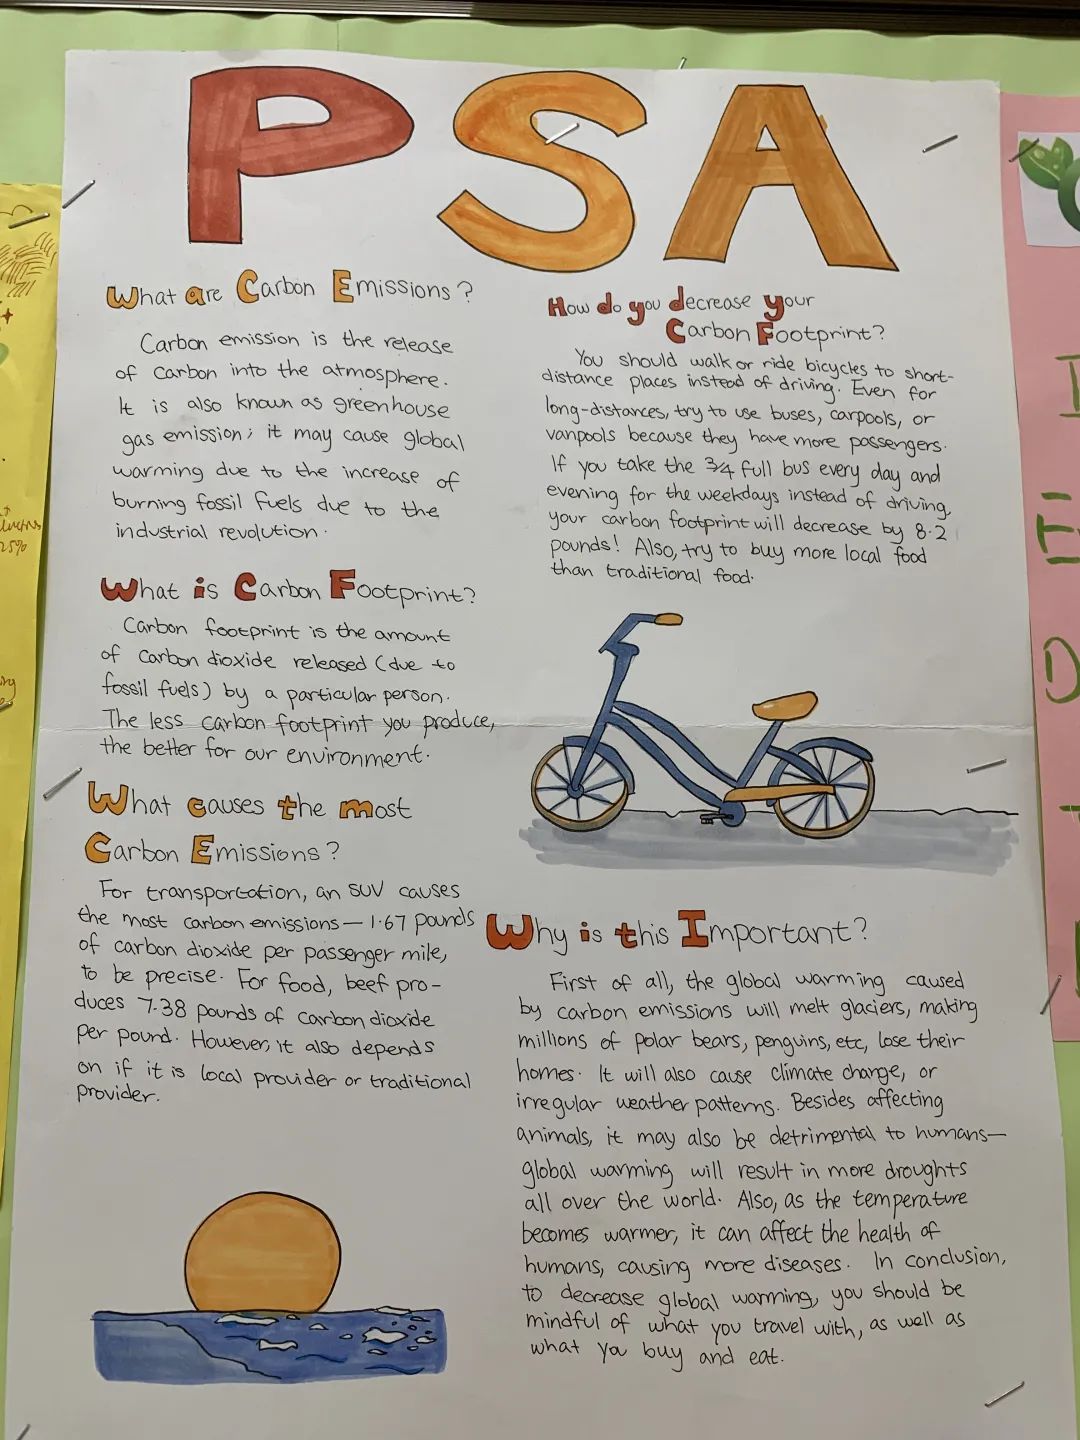 PSA
What are Carbon Emissions?
Carbon emission is the release
of carbon into the atmosphere.
It is also known as greenhouse
gas emission; it may cause global
warming due to the increase of
burning fossil fuels due to the
industrial revolution.
What is Carbon Footprint?
Carbon footprint is the amount
of carbon dioxide released (due to
fossil fuels) by a particular person.
The less carbon footprint you produce,
the better for our environment.
What causes the most
Carbon Emissions?
For transportation, an SUV causes
the most carbon emissions— 1.67 pounds
of carbon dioxide per passenger mile,
to be precise. For food, beef pro-
duces 7.38 pounds of carbon dioxide
per pound. However, it also depends
on if it is local provider or traditional
provider.
How do you decrease your
Carbon Footprint?
You should walk or ride bicycles to short-
distance places instead of driving. Even for
long-distances, try to use buses, carpools, or
vanpools because they have more passengers.
If you take the 3/4 full bus every day and
evening for the weekdays instead of driving,
your carbon footprint will decrease by 8.2
pounds! Also, try to buy more local food
than traditional food.
Why is this Important?
First of all, the global warming caused
by carbon emissions will melt glaciers, making
millions of polar bears, penguins, etc, lose their
homes. It will also cause climate change, or
irregular weather patterns. Besides affecting
animals, it may also be detrimental to humans—
global warming will result in more droughts
all over the world. Also, as the temperature
becomes warmer, it can affect the health of
humans, causing more diseases. In conclusion,
to decrease global warming, you should be
mindful of what you travel with, as well as
what you buy and eat.
25%